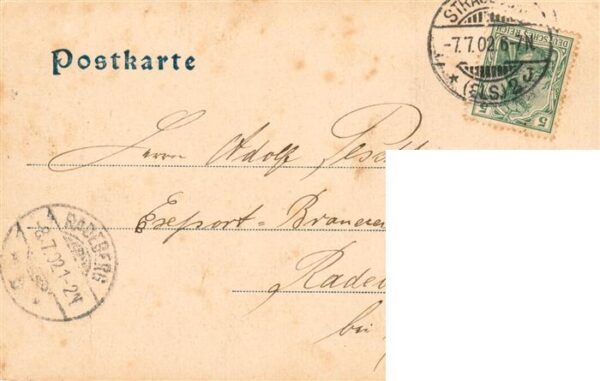 Postkarte
STRASS
-7.7.02.6-7N
* (ELS.) 2. J.
DEUTSCHES REICH
5 5
Herrn Adolf
Export-Brauerei
RADEBERG
-8.7.02.1-2N
bei